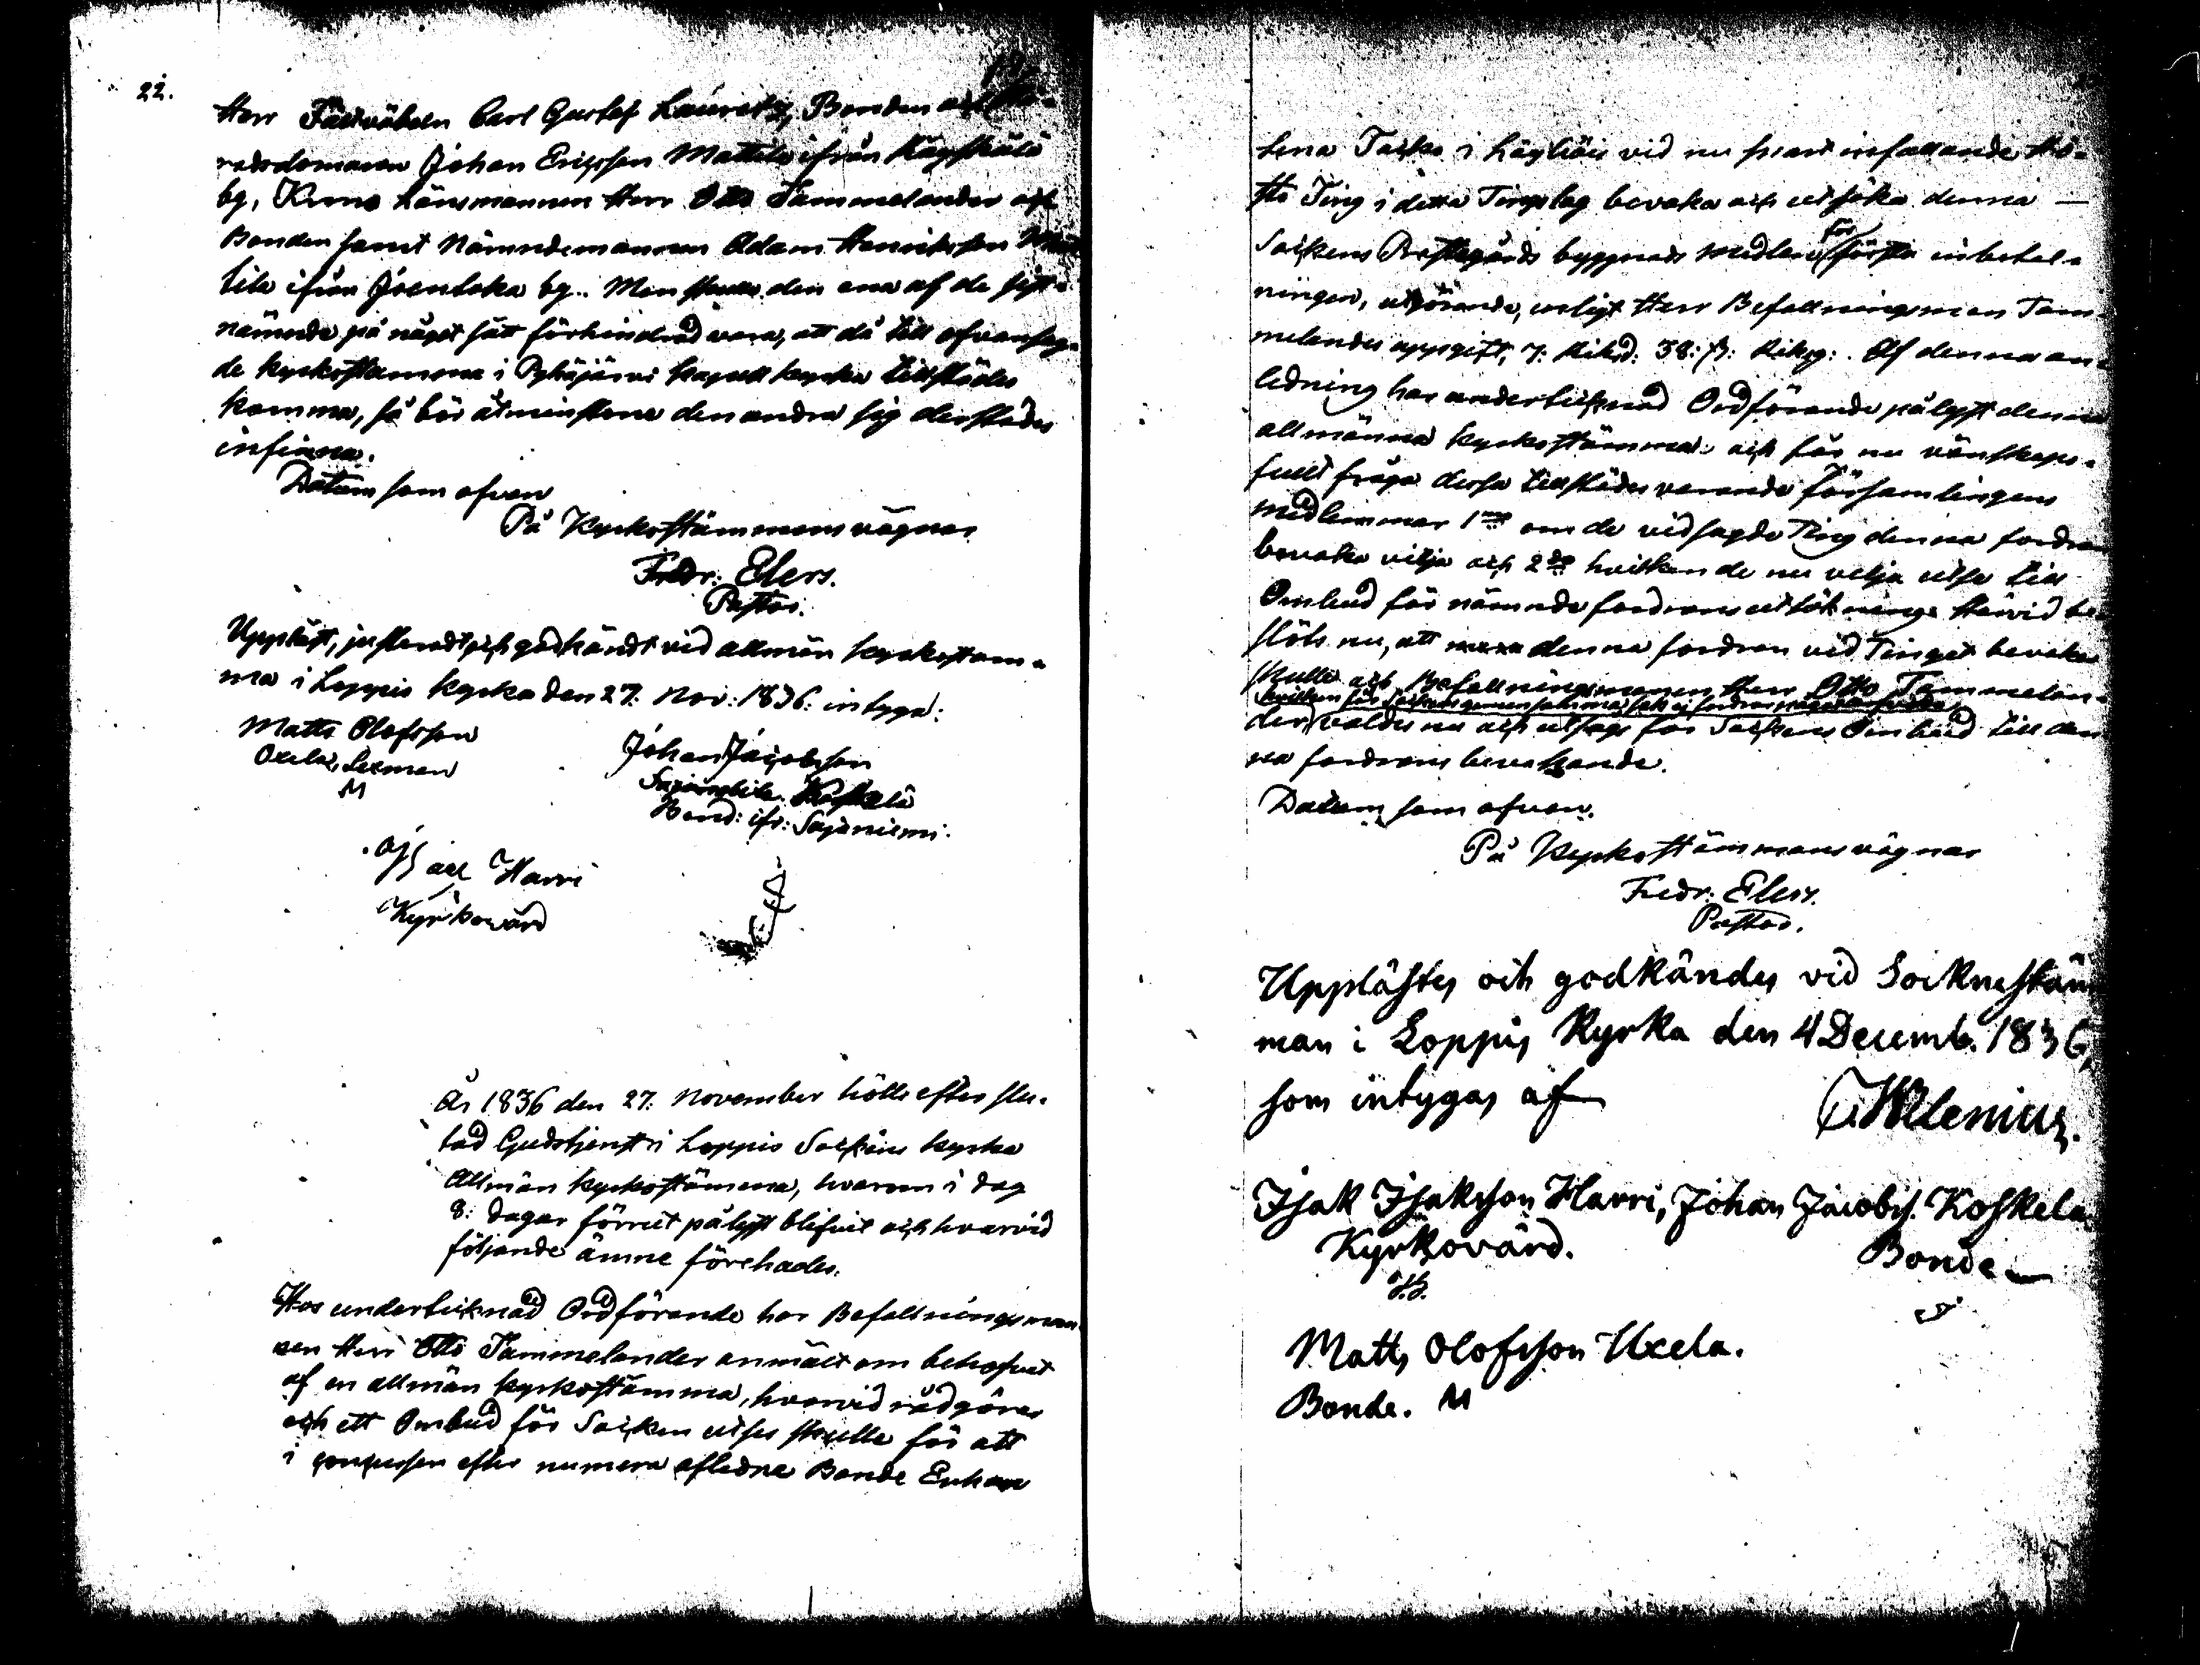 22.
Herr Fältväbeln Carl Gustaf Lauretz, Bonden och Hä-
radsdomaren Johan Ericsson Mattila ifrån Kägskälä
by, Krono Länsmannen Herr Otto Tammelander och
Bonden samt Nämndemannen Adam Henricsson
tila ifrån Joentaka by. Men skulle den ena af de sist-
nämnde på något sätt förhindrad vara, att då till ofvansag-
de kyrkostämma i Pyhäjärvi kapell kyrka tillstädes
komma, så bör åtminstone den andra sig derstädes
infinna.
Datum som ofvan
På Kyrkostämmans vägnar
Fredr: Elers.
Pastor.
Uppläst, justeradt och godkändt vid allmän kyrkostäm-
ma i Loppis kyrka den 27: Nov: 1836: intyga:
Matts Olofsson
Uxela, Lexman
M
Johan Jacobsson
Koskela
Bond: ifr: Sajaniemi.
Isac Harri
Kyrkovärd
År 1836 den 27: November hölls efter slu-
tad Gudstjenst i Loppis Sockens kyrka
Allmän kyrkostämma, hvarom i dag
8: dagar förrut pålyst blifvit och hvarvid
följande ämne förehades.
Hos undertecknad Ordförande har Befallningsman-
nen Herr Otto Tammelander anmält om behofvet
af en allmän kyrkostämma, hvarvid rådgöras
och ett Ombud för Socken utses skulle för att
i concursen efter numera aflidne Bonde Enkan
Lena Taipa i Läyliäis vid nu snart infallande Hö-
ste Ting i detta Tingslag bevaka och utsöka denna —
Sockens Prestegårds byggnads medlens för första inbetal-
ningen, utgörande, enligt Herr Befallningsman Tam-
melanders uppgift, 7: Riksd: 38: ß: Riksg:. Af denna an-
ledning har undertecknad Ordförande pålyst denna
allmänna kyrkostämma och får nu vänskaps-
fullt fråga dessa tillstädes varande församlingens
medlemmar 1mo om de vid sagde Ting denna fordran
bevaka vilja och 2do hvilken de nu vilja utse till
Ombud för nämnde fordrans utsökning. Härvid be-
slöts nu, att denna fordran vid Tinget bevakas
skulle och Befallningsmannen Herr Otto Tammelan-
der valdes nu och utsågs för Sockens Ombud till den-
na fordrans bevakande.
Datum som ofvan.
På Kyrkostämmans vägnar
Fredr: Elers.
Pastor.
Upplästes och godkändes vid Socknestäm
man i Loppis Kyrka den 4 Decemb. 1836,
som intygas af
Wlenius.
Isak Isaksson Harri, Johan Jacobss. Koskela
Kyrkovärd.
Bonde
Matts Olofsson Uxela.
Bonde. M